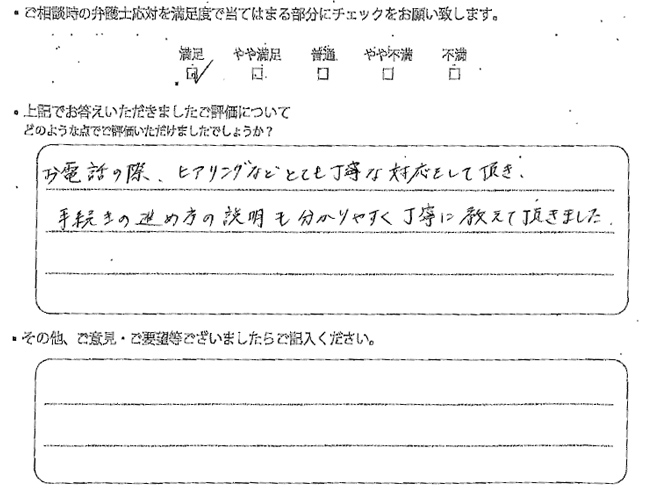 ・ご相談時の弁護士応対を満足度で当てはまる部分にチェックをお願い致します。
満足 やや満足 普通 やや不満 不満
☑ □ □ □ □
・上記でお答えいただきましたご評価について
どのような点でご評価いただけましたでしょうか？
お電話の際、ヒアリングなどとても丁寧な対応をして頂き、
手続きの進め方の説明も分かりやすく丁寧に教えて頂きました.
・その他、ご意見・ご要望等ございましたらご記入ください。